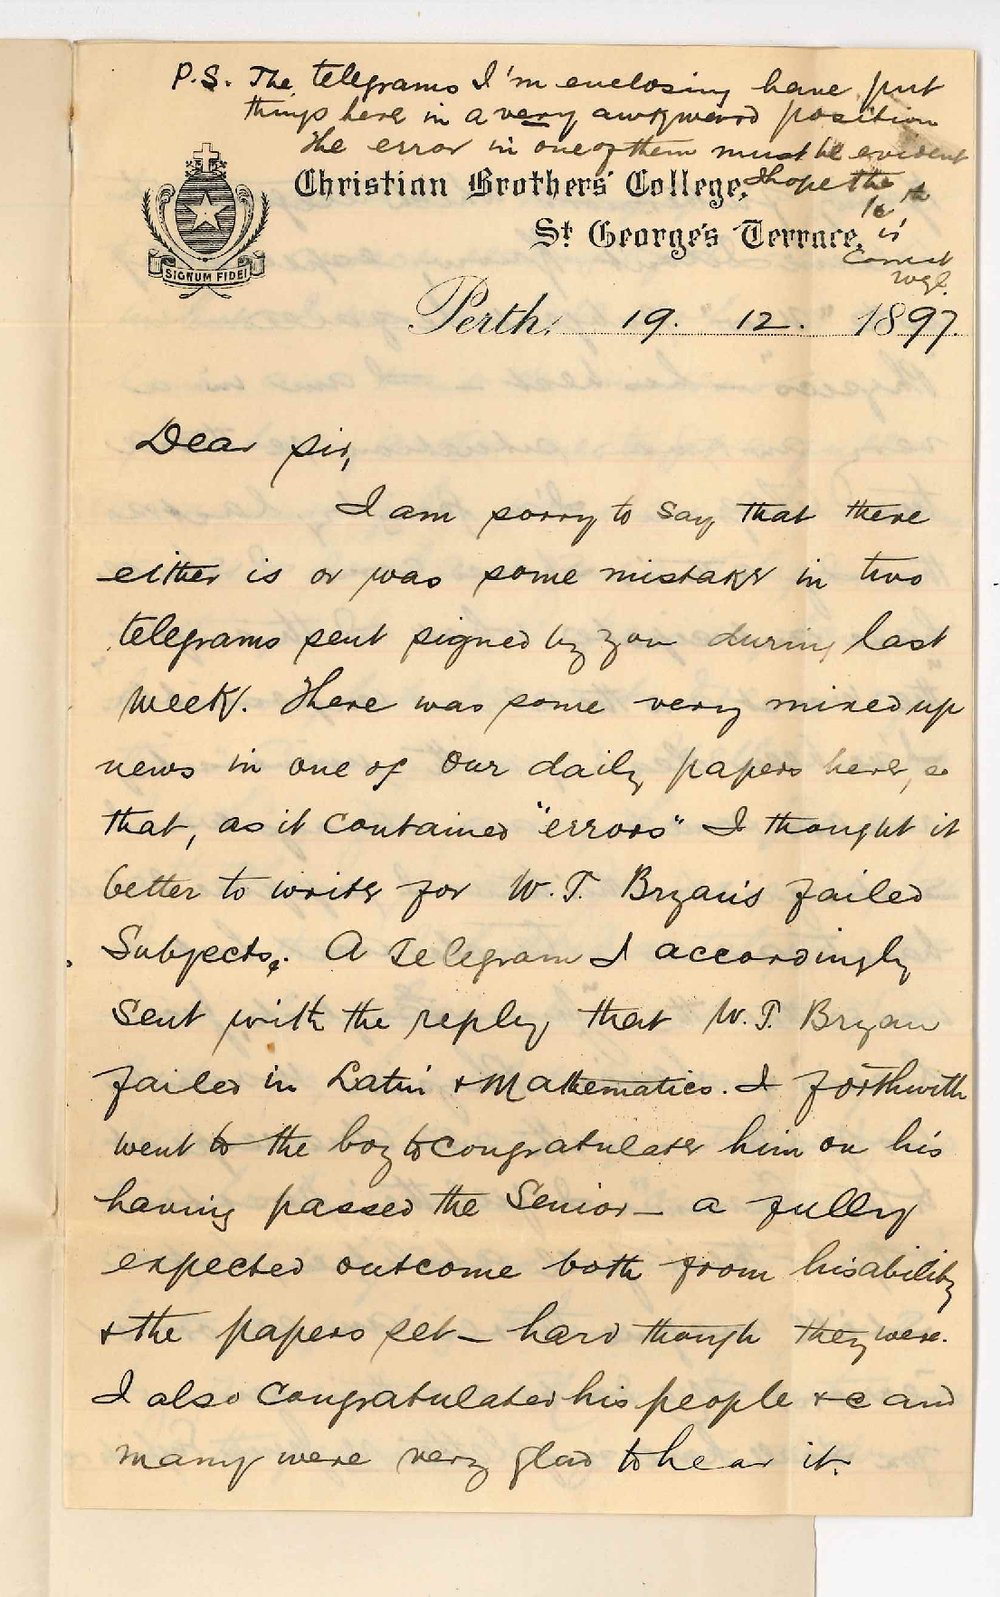 P.S. The telegrams I'm enclosing have put
things here in a very awkward position
The error in one of them must be evident
I hope the
1st
is
Correct
Christian Brothers' College,
St George's Terrace,
SIGNUM FIDEI
Perth, 19. 12. 1897.
Dear Sir,
I am sorry to say that there
either is or was some mistake in two
telegrams sent signed by you during last
week. There was some very mixed up
news in one of our daily papers here, so
that, as it contained "errors" I thought it
better to write for W. T. Bryan's failed
Subjects. A Telegram I accordingly
sent with the reply that W. T. Bryan
failed in Latin & Mathematics. I forthwith
went to the boy to congratulate him on his
having passed the Senior — a fully
expected outcome both from his ability
& the papers set — hard though they were.
I also congratulated his people &c and
many were very glad to hear it.